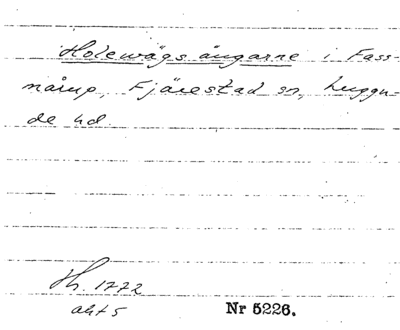 Holewägs ängarne i Fass-
nårup, Fjärestad sn, Luggu-
de hd.
Hh. 1772
akt 5
Nr 5226.